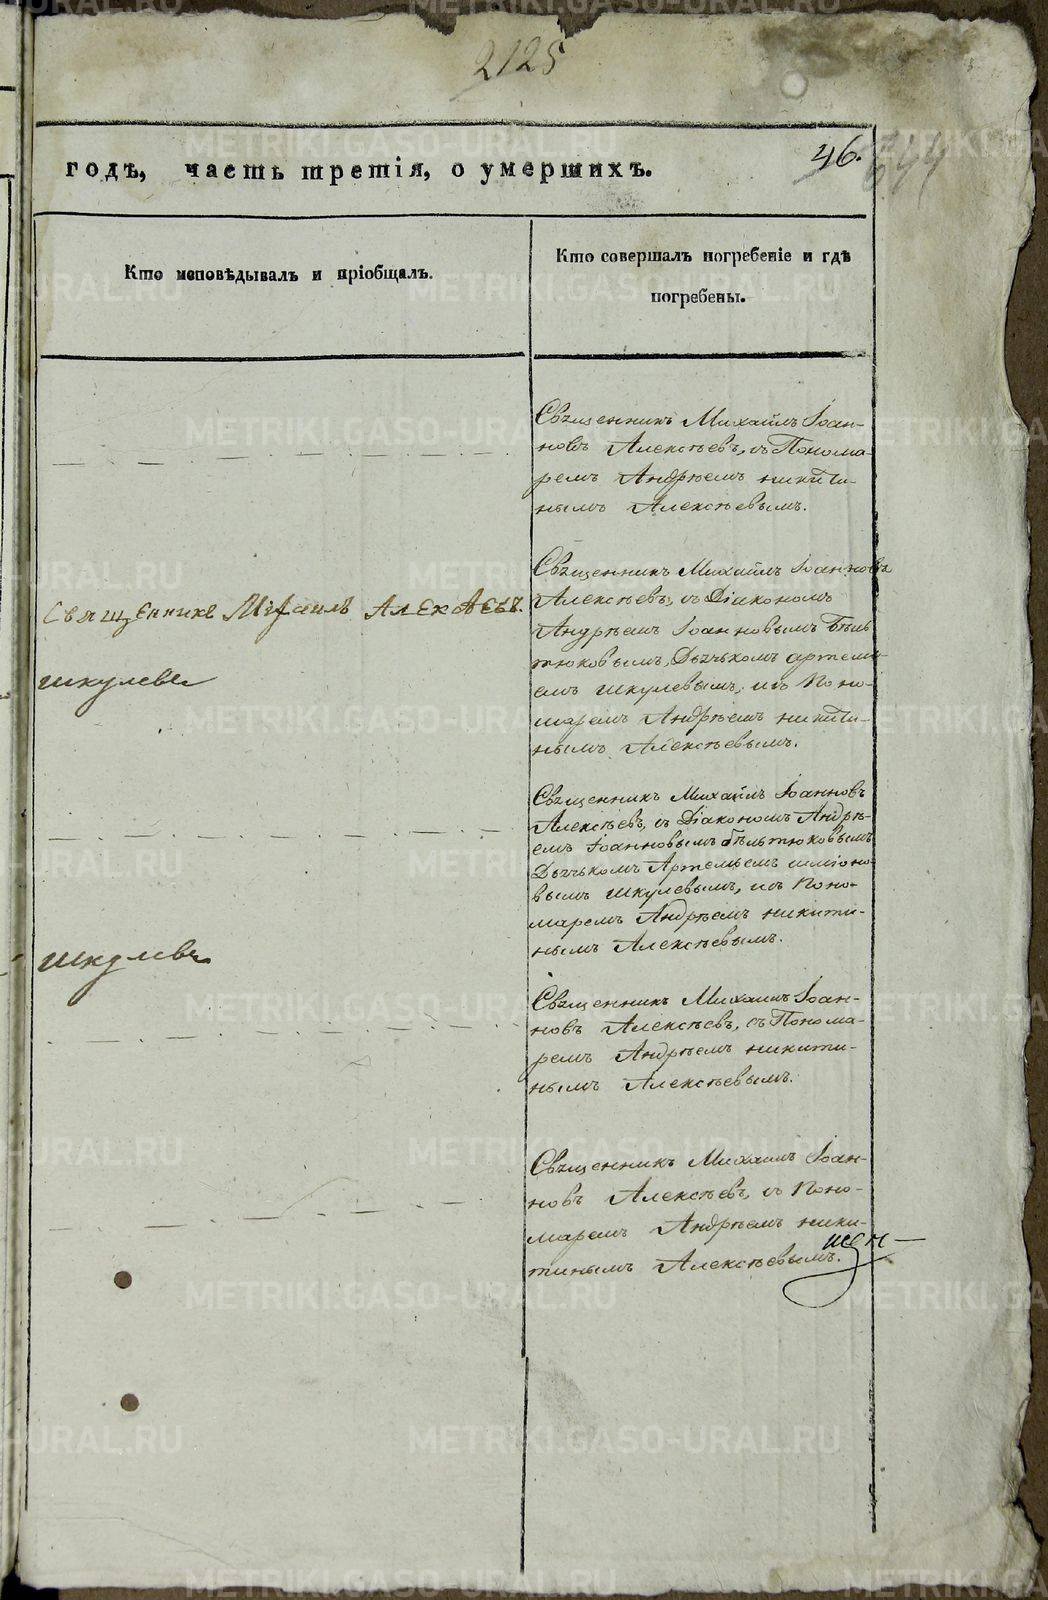 2125
46.
годѣ, часть третія, о умершихъ.
Кто исповѣдывалъ и пріобщалъ.
Кто совершалъ погребеніе и гдѣ
погребены.
Священникъ Михаилъ Іоан-
новъ Алексѣевъ, съ Понома-
ремъ Андрѣемъ Никити-
нымъ Алексѣевымъ.
Священникъ Михаилъ Іоанновъ
Алексѣевъ, съ Діакономъ
Андрѣемъ Іоанновымъ Бѣль
тюковымъ, Дьячькомъ Артемі
емъ Шкулевымъ, и съ Поно-
маремъ Андрѣемъ Никити-
нымъ Алексѣевымъ.
Священникъ Михаилъ Алексѣевъ.
Шкулевъ
Священникъ Михаилъ Іоанновъ
Алексѣевъ, съ Діакономъ Андрѣ-
емъ Іоанновымъ Бѣльтюковымъ
Дьячькомъ Артемьемъ Симіоно-
вымъ Шкулевымъ, и съ Поно-
маремъ Андрѣемъ Никити-
нымъ Алексѣевымъ.
Шкулевъ
Священникъ Михаилъ Іоан-
новъ Алексѣевъ, съ Понома-
ремъ Андрѣемъ Никити-
нымъ Алексѣевымъ.
Священникъ Михаилъ Іоан-
новъ Алексѣевъ, съ Поно-
маремъ Андрѣемъ Ники-
тинымъ Алексѣевымъ.
METRIKI.GASO-URAL.RU